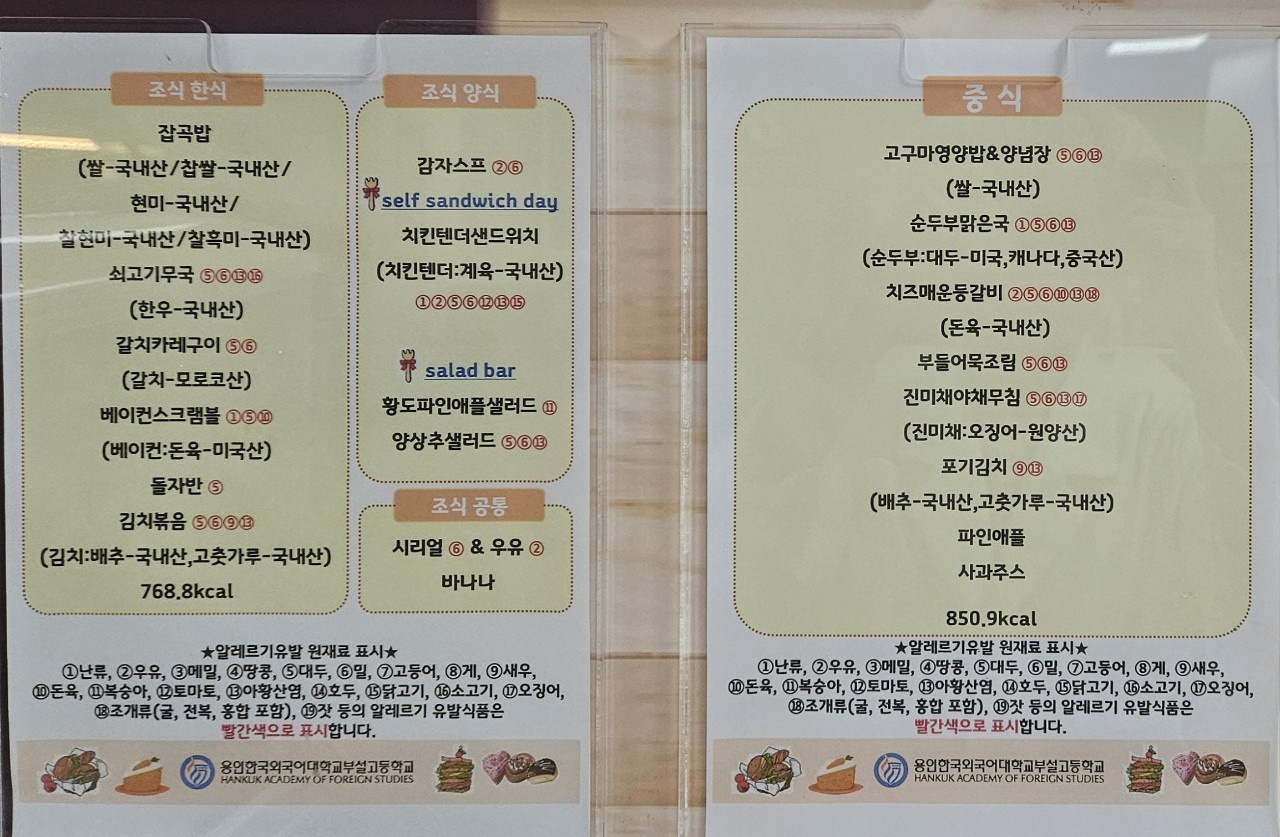 조식 한식
잡곡밥
(쌀-국내산/찹쌀-국내산/
현미-국내산/
찰현미-국내산/찰흑미-국내산)
쇠고기무국 ⑤⑥⑬⑯
(한우-국내산)
갈치카레구이 ⑤⑥
(갈치-모로코산)
베이컨스크램블 ①⑤⑩
(베이컨:돈육-미국산)
돌자반 ⑤
김치볶음 ⑤⑥⑨⑬
(김치:배추-국내산,고춧가루-국내산)
768.8kcal
조식 양식
감자스프 ②⑥
self sandwich day
치킨텐더샌드위치
(치킨텐더:계육-국내산)
①②⑤⑥⑫⑬⑮
salad bar
황도파인애플샐러드 ⑪
양상추샐러드 ⑤⑥⑬
조식 공통
시리얼 ⑥ & 우유 ②
바나나
★알레르기유발 원재료 표시★
①난류, ②우유, ③메밀, ④땅콩, ⑤대두, ⑥밀, ⑦고등어, ⑧게, ⑨새우,
⑩돈육, ⑪복숭아, ⑫토마토, ⑬아황산염, ⑭호두, ⑮닭고기, ⑯소고기, ⑰오징어,
⑱조개류(굴, 전복, 홍합 포함), ⑲잣 등의 알레르기 유발식품은
빨간색으로 표시합니다.
용인한국외국어대학교부설고등학교
HANKUK ACADEMY OF FOREIGN STUDIES
중 식
고구마영양밥&양념장 ⑤⑥⑬
(쌀-국내산)
순두부맑은국 ①⑤⑥⑬
(순두부:대두-미국,캐나다,중국산)
치즈매운등갈비 ②⑤⑥⑩⑬⑱
(돈육-국내산)
부들어묵조림 ⑤⑥⑬
진미채야채무침 ⑤⑥⑬⑰
(진미채:오징어-원양산)
포기김치 ⑨⑬
(배추-국내산,고춧가루-국내산)
파인애플
사과주스
850.9kcal
★알레르기유발 원재료 표시★
①난류, ②우유, ③메밀, ④땅콩, ⑤대두, ⑥밀, ⑦고등어, ⑧게, ⑨새우,
⑩돈육, ⑪복숭아, ⑫토마토, ⑬아황산염, ⑭호두, ⑮닭고기, ⑯소고기, ⑰오징어,
⑱조개류(굴, 전복, 홍합 포함), ⑲잣 등의 알레르기 유발식품은
빨간색으로 표시합니다.
용인한국외국어대학교부설고등학교
HANKUK ACADEMY OF FOREIGN STUDIES